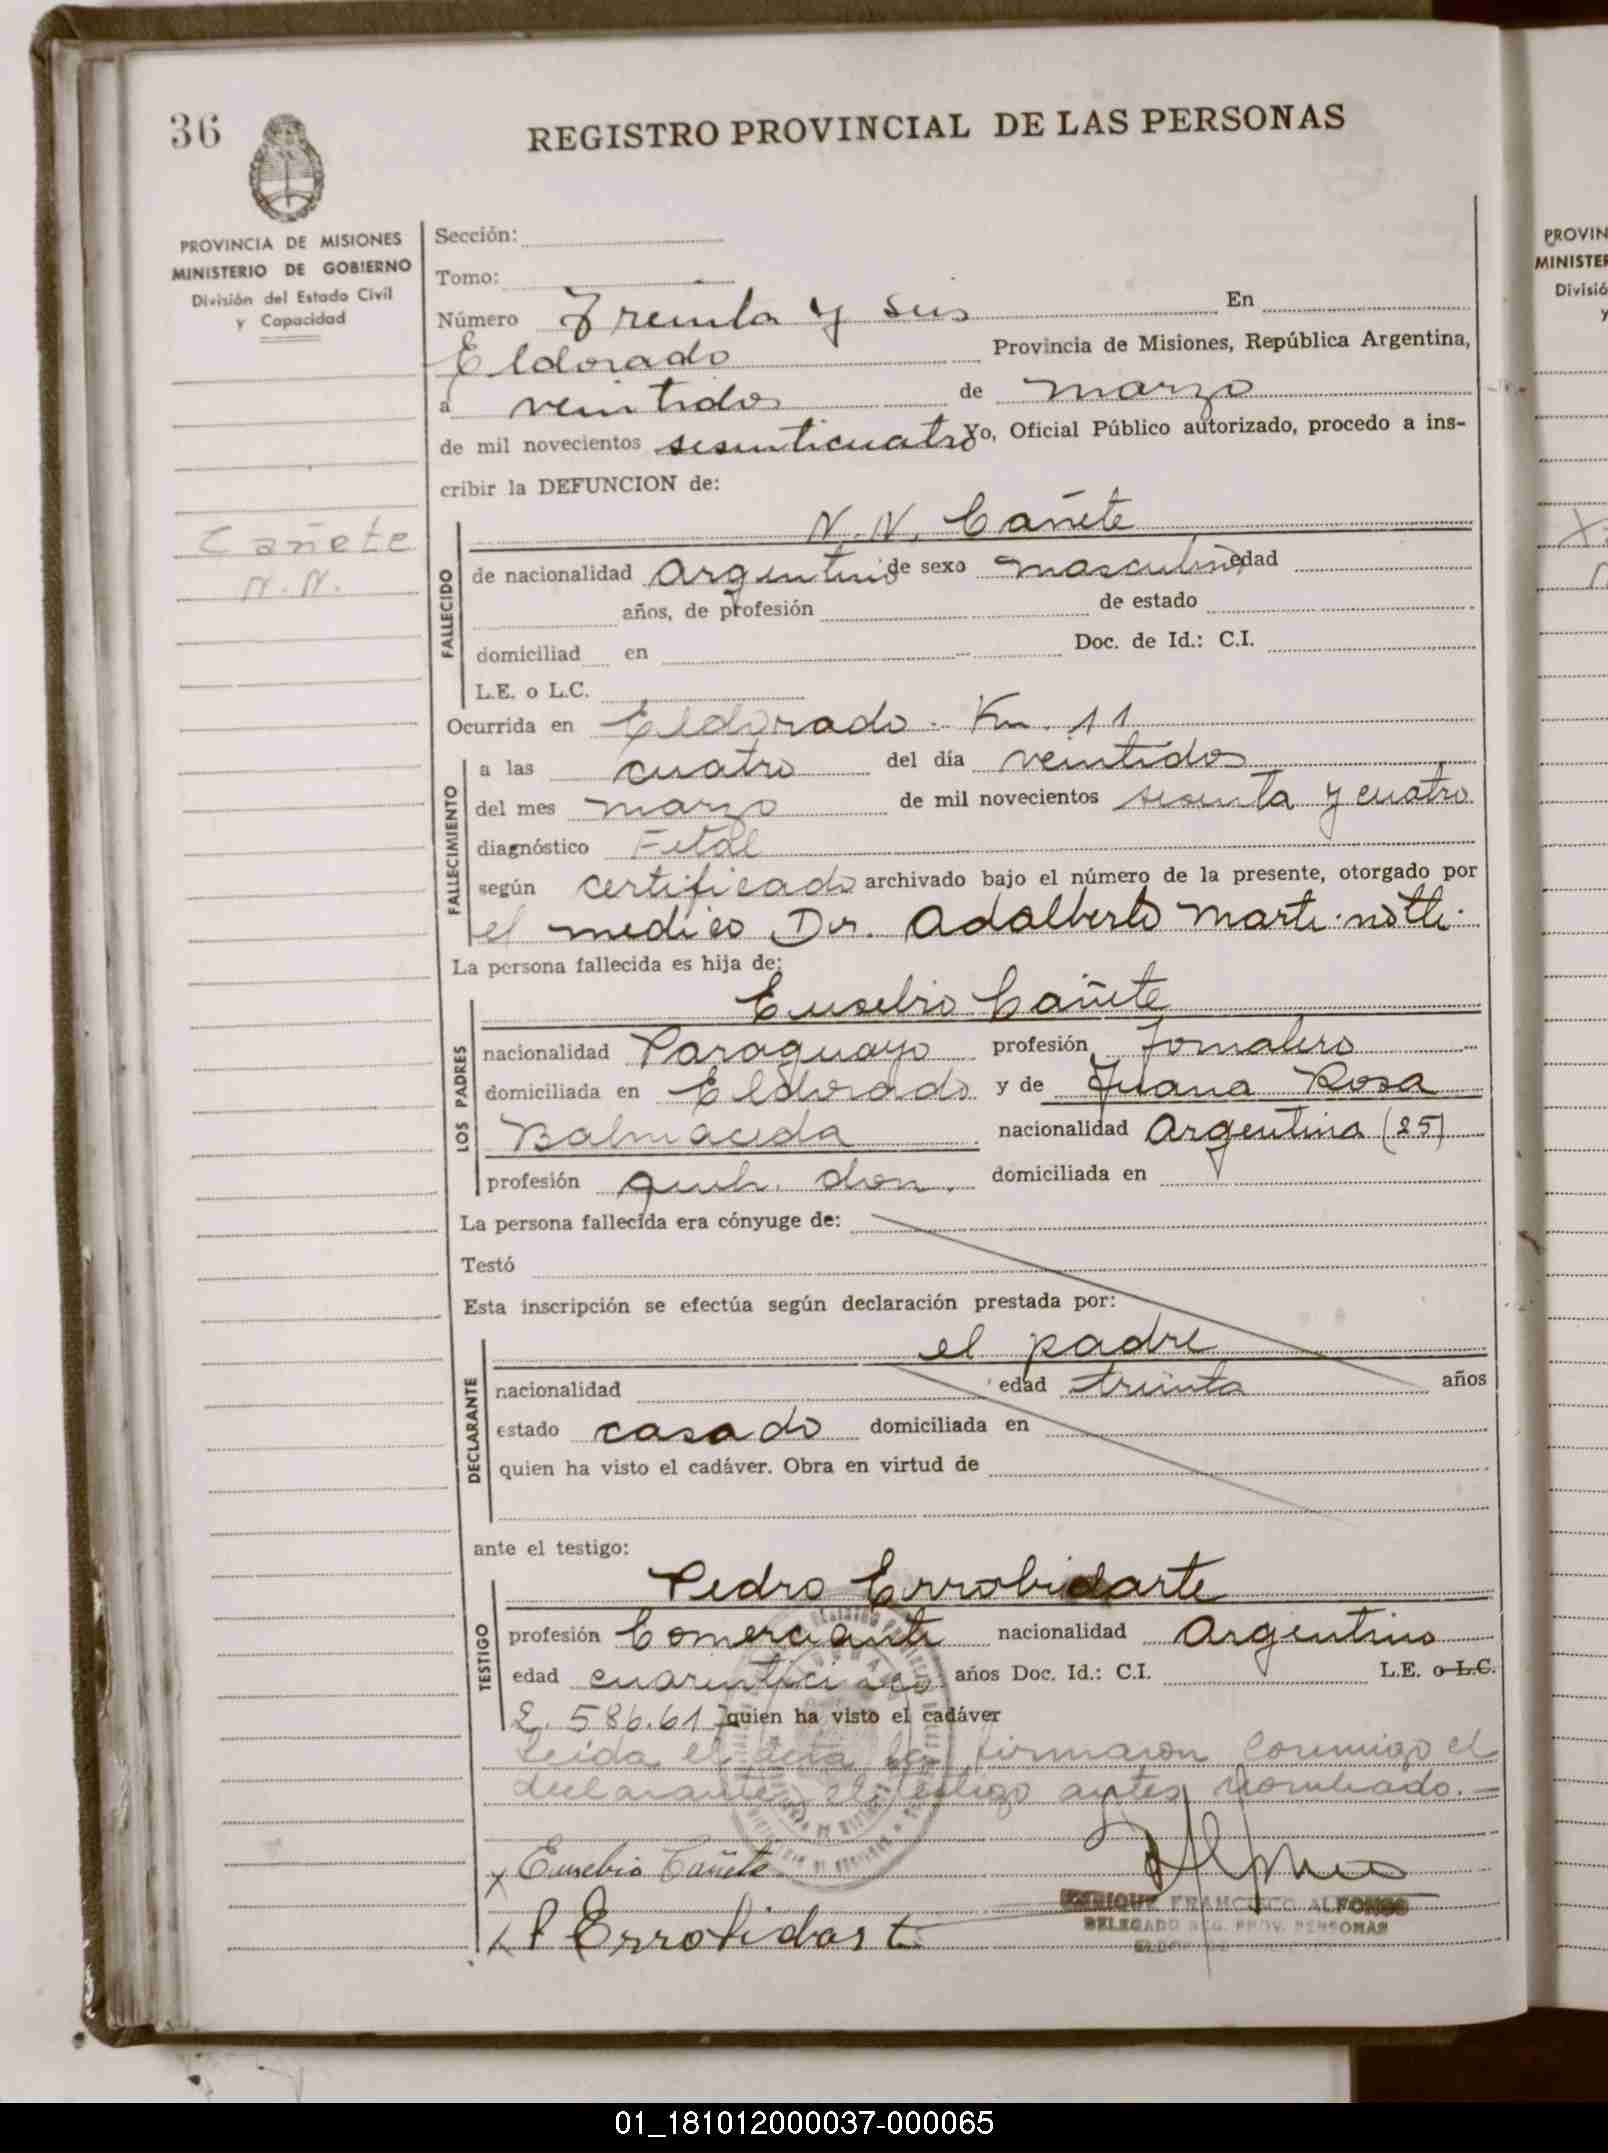 36
REGISTRO PROVINCIAL DE LAS PERSONAS
PROVINCIA DE MISIONES
MINISTERIO DE GOBIERNO
División del Estado Civil
y Capacidad
Cañete
N.N.
Sección:
Tomo:
Número Treinta y seis En
Eldorado Provincia de Misiones, República Argentina,
a veintidos de marzo
de mil novecientos sesenticuatro Yo, Oficial Público autorizado, procedo a ins-
cribir la DEFUNCION de:
FALLECIDO
N. N. Cañete
de nacionalidad Argentino de sexo masculino edad
años, de profesión de estado
domiciliad en Doc. de Id.: C.I.
L.E. o L.C.
Ocurrida en Eldorado - Km. 11
FALLECIMIENTO
a las cuatro del día veintidos
del mes marzo de mil novecientos sesenta y cuatro
diagnóstico Fetal
según certificado archivado bajo el número de la presente, otorgado por
el medico Dr. Adalberto Martinotti
La persona fallecida es hija de:
LOS PADRES
Eusebio Cañete
nacionalidad Paraguayo profesión Jornalero
domiciliada en Eldorado y de Juana Rosa
Balmaceda nacionalidad Argentina (25)
profesión queh. dom. domiciliada en
La persona fallecida era cónyuge de:
Testó
Esta inscripción se efectúa según declaración prestada por:
DECLARANTE
el padre
nacionalidad edad treinta años
estado casado domiciliada en
quien ha visto el cadáver. Obra en virtud de
ante el testigo:
TESTIGO
Pedro Errobidarte
profesión Comerciante nacionalidad Argentino
edad cuarenticinco años Doc. Id.: C.I. L.E. o L.C.
2.586.617 quien ha visto el cadáver
Leida el acta la firmaron conmigo el
declarante y el testigo antes nombrado.=
x Eusebio Cañete
x P Errobidart
ENRIQUE FRANCISCO ALFONSO
DELEGADO REG. PROV. PERSONAS
ELDORADO
PROVIN
MINISTER
Divisió
y
01_181012000037-000065